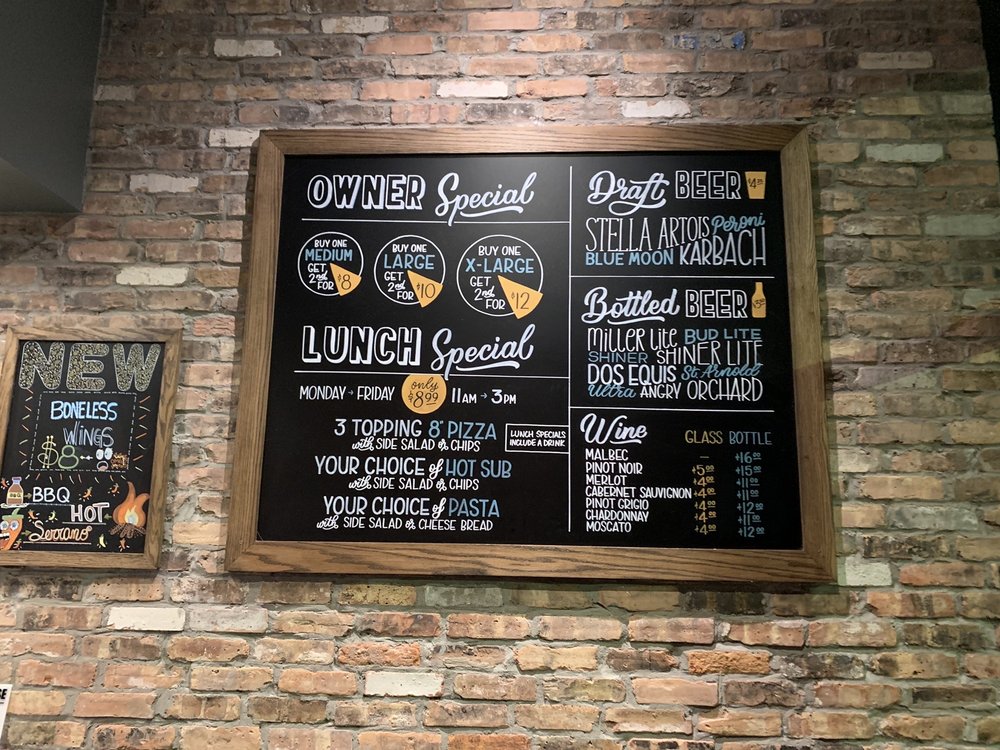 NEW
BONELESS
WINGS
$8
BBQ
HOT
Serrano
OWNER Special
BUY ONE
MEDIUM
GET
2nd
FOR
$8
BUY ONE
LARGE
GET
2nd
FOR
$10
BUY ONE
X-LARGE
GET
2nd
FOR
$12
LUNCH Special
MONDAY → FRIDAY only $8.99 11AM → 3PM
3 TOPPING 8" PIZZA
with SIDE SALAD or CHIPS
LUNCH SPECIALS
INCLUDE A DRINK
YOUR CHOICE of HOT SUB
with SIDE SALAD or CHIPS
YOUR CHOICE of PASTA
with SIDE SALAD or CHEESE BREAD
Draft BEER
STELLA ARTOIS Peroni
BLUE MOON KARBACH
Bottled BEER
Miller Lite BUD LITE
SHINER SHINER LITE
DOS EQUIS St. Arnold
Ultra ANGRY ORCHARD
Wine GLASS BOTTLE
MALBEC — $16.00
PINOT NOIR $5.00 $15.00
MERLOT $4.00 $11.00
CABERNET SAUVIGNON $4.00 $11.00
PINOT GRIGIO $4.00 $12.00
CHARDONNAY $4.00 $11.00
MOSCATO $4.00 $12.00